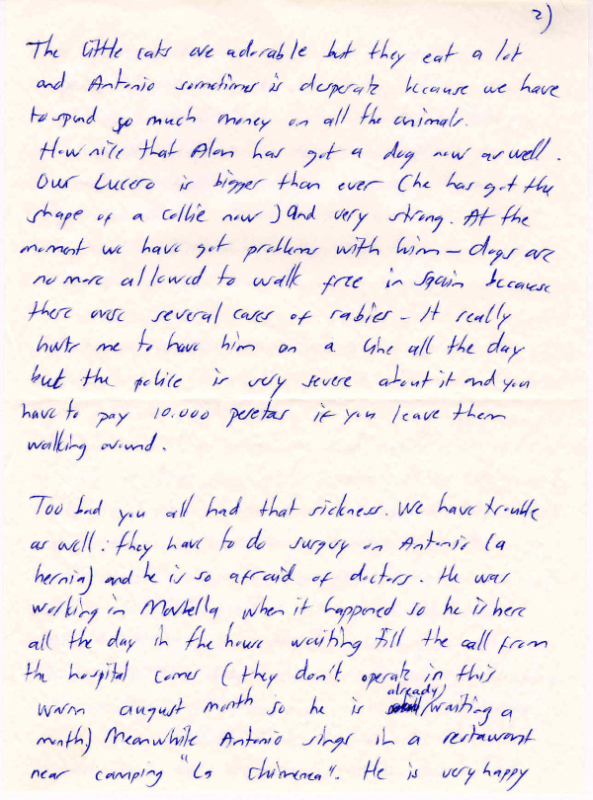 2)
The little cats are adorable but they eat a lot
and Antonio sometimes is desperate because we have
to spend so much money on all the animals.
How nice that Alan has got a dog now as well.
Our Lucero is bigger than ever (he has got the
shape of a collie now) and very strong. At the
moment we have got problems with him - dogs are
no more allowed to walk free in Spain because
there were several cases of rabies - It really
hurts me to have him on a line all the day
but the police is very severe about it and you
have to pay 10.000 pesetas if you leave them
walking around.
Too bad you all had that sickness. We have trouble
as well: they have to do surgery on Antonio (a
hernia) and he is so afraid of doctors. He was
working in Marbella when it happened so he is here
all the day in the house waiting till the call from
the hospital comes (they don't operate in this
warm august month so he is already waiting a
month) Meanwhile Antonio sings in a restaurant
near camping "La Chimenea". He is very happy